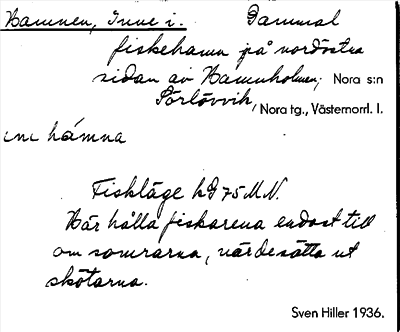 Hamnen, Inne i. Gammal
fiskehamn på nordöstra
sidan av Hamnholmen; Nora s:n
Sörlövvik, Nora tg., Västernorrl. l.
hámna
Fiskläge 75 M.N.
Här hålla fiskarena endast till
om somrarna, när de sätta ut
skötarna.
Sven Hiller 1936.